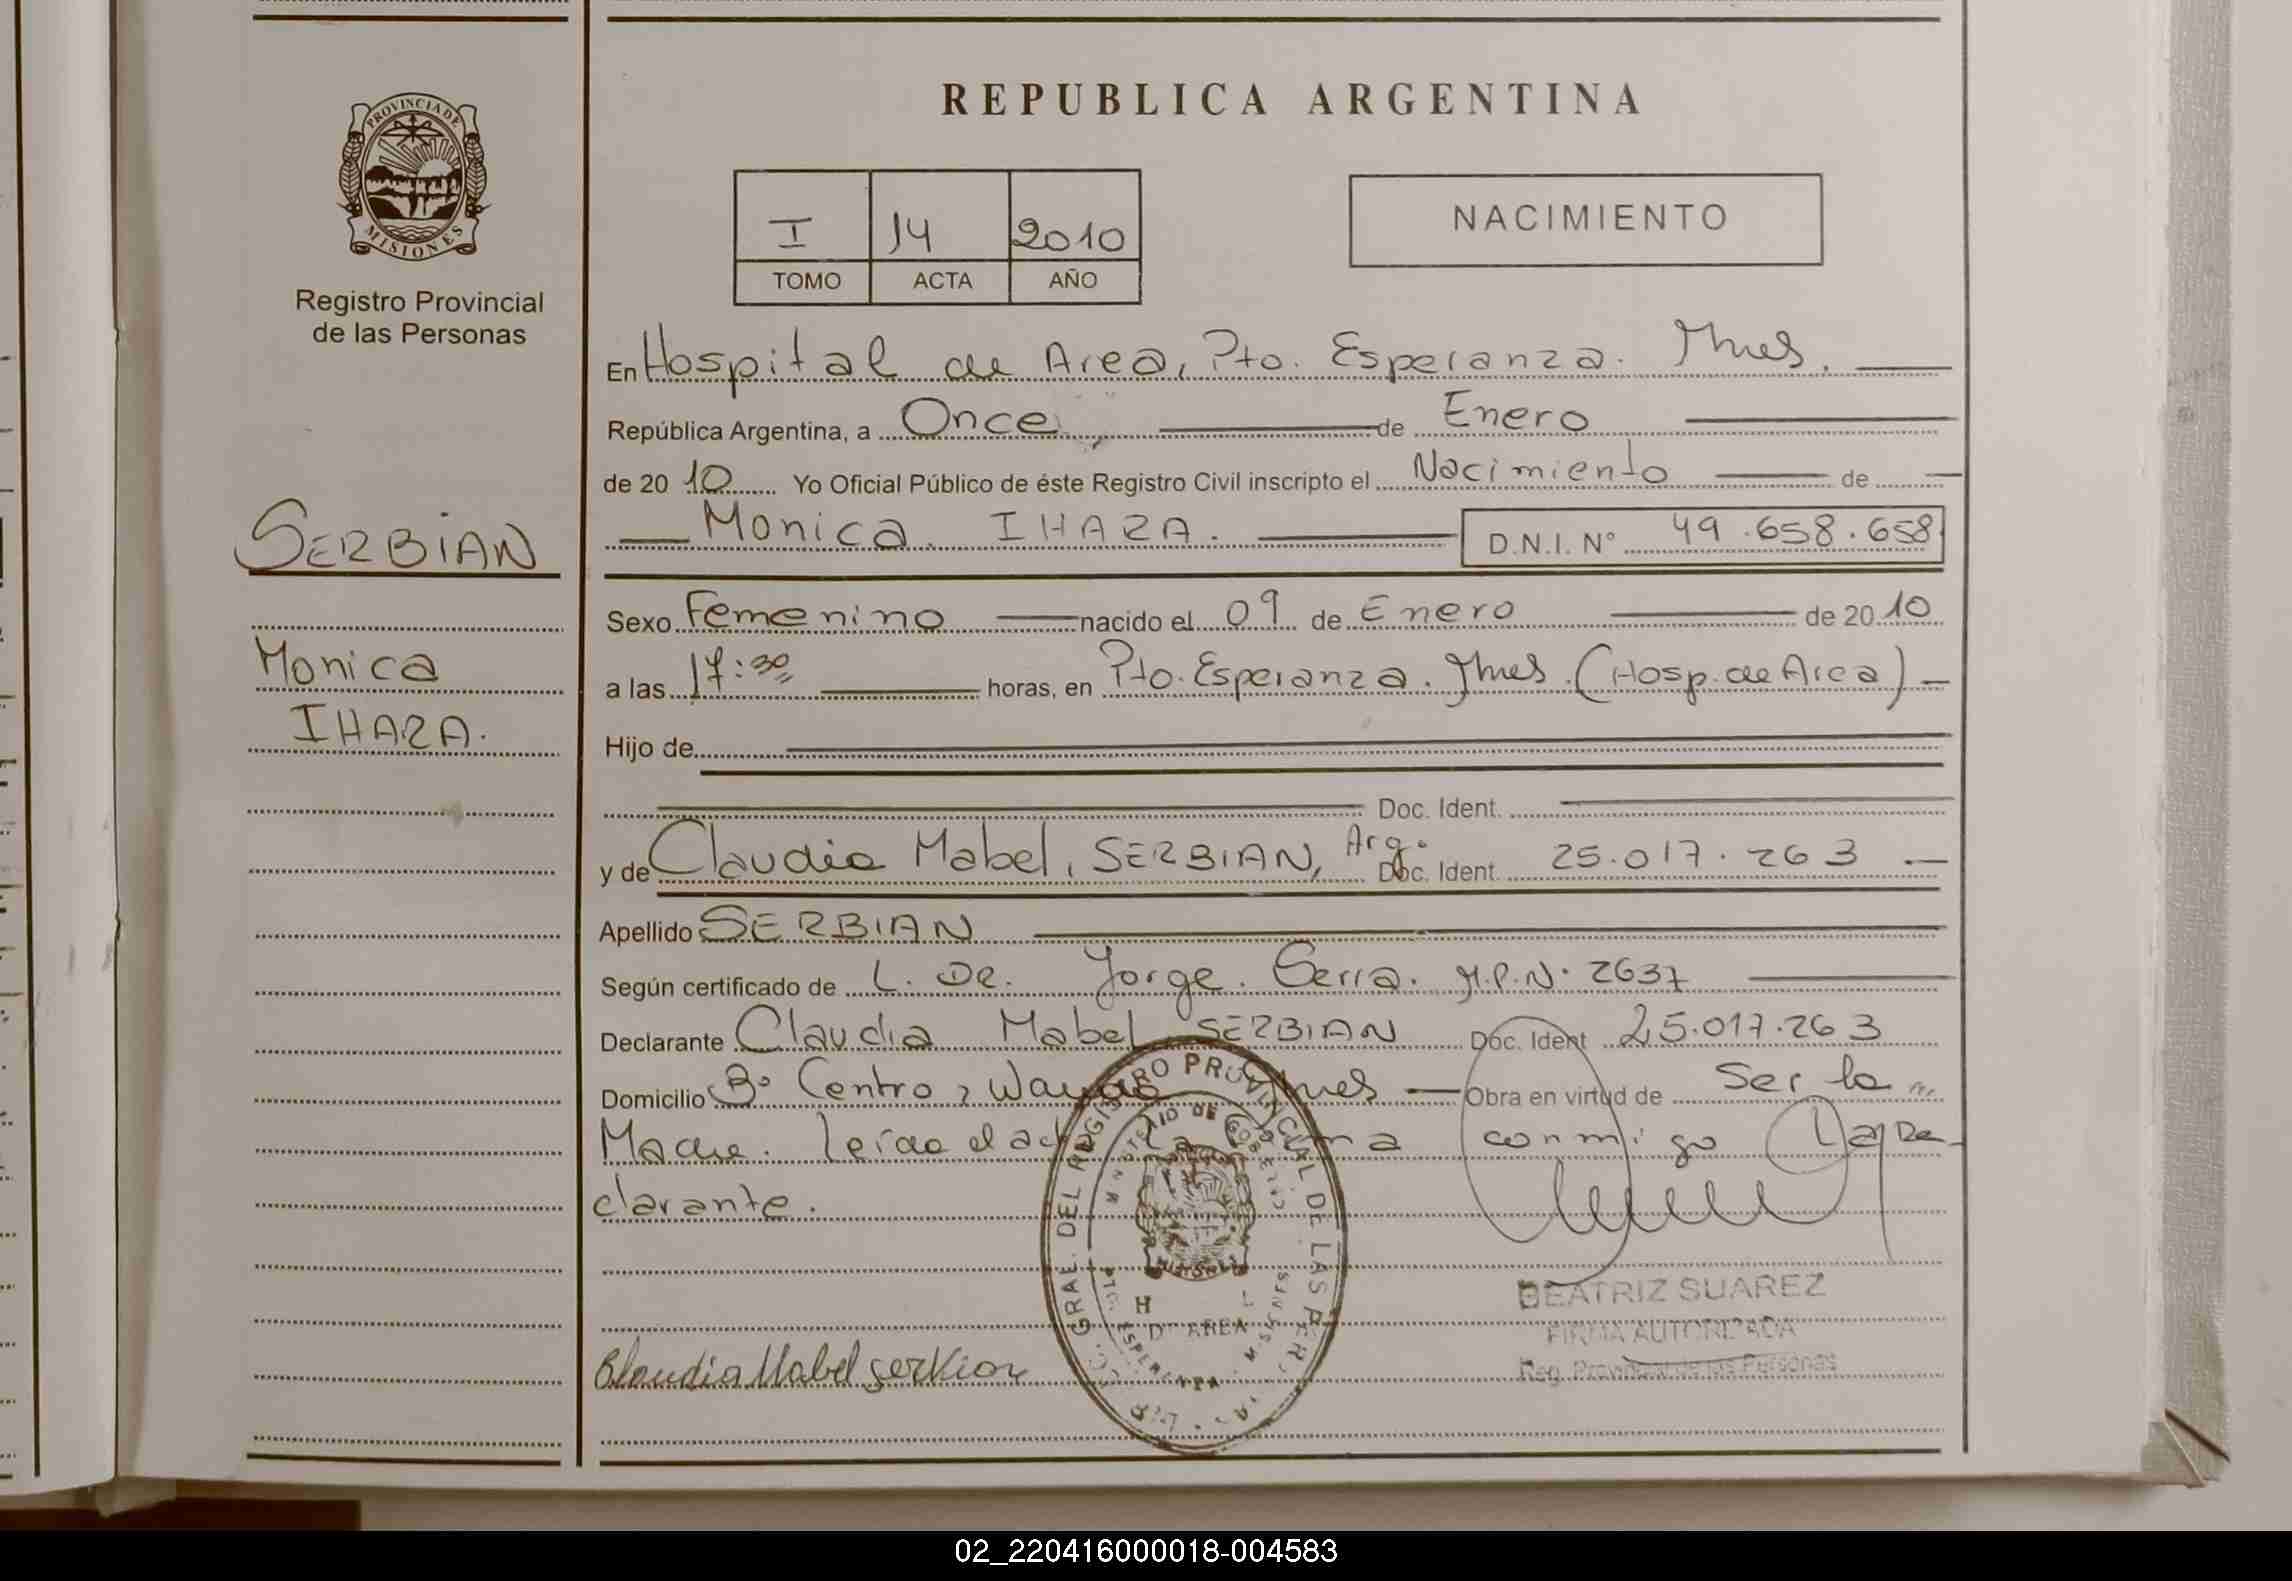 REPUBLICA ARGENTINA
PROVINCIA DE
MISIONES
Registro Provincial
de las Personas
I 14 2010
TOMO ACTA AÑO
NACIMIENTO
En Hospital de Area, Pto. Esperanza. Mnes.
República Argentina, a Once de Enero
de 20 10 Yo Oficial Público de éste Registro Civil inscripto el Nacimiento de
Monica IHARA. D.N.I. N° 49.658.658
SERBIAN
Monica
IHARA.
Sexo Femenino nacido el 09 de Enero de 20 10
a las 17:30 horas, en Pto. Esperanza. Mnes. (Hosp. de Area)
Hijo de
Doc. Ident.
y de Claudia Mabel, SERBIAN, Arg. Doc. Ident. 25.017.263
Apellido SERBIAN
Según certificado de L. DR. Jorge. Serra. M.P.N. 2637
Declarante Claudia Mabel SERBIAN Doc. Ident 25.017.263
Domicilio B° Centro, Mnes Obra en virtud de Ser la
Madre. leido el acta la firma conmigo La De
clarante.
GRAL. DEL REGISTRO PROVINCIAL DE LAS PER.
MINISTERIO DE GOBIERNO
MISIONES
H L
D AREA
PTO. ESPERANZA - MISIONES
BEATRIZ SUAREZ
FIRMA AUTORIZADA
Reg. Provincial de las Personas
Claudia Mabel serbian
02_220416000018-004583